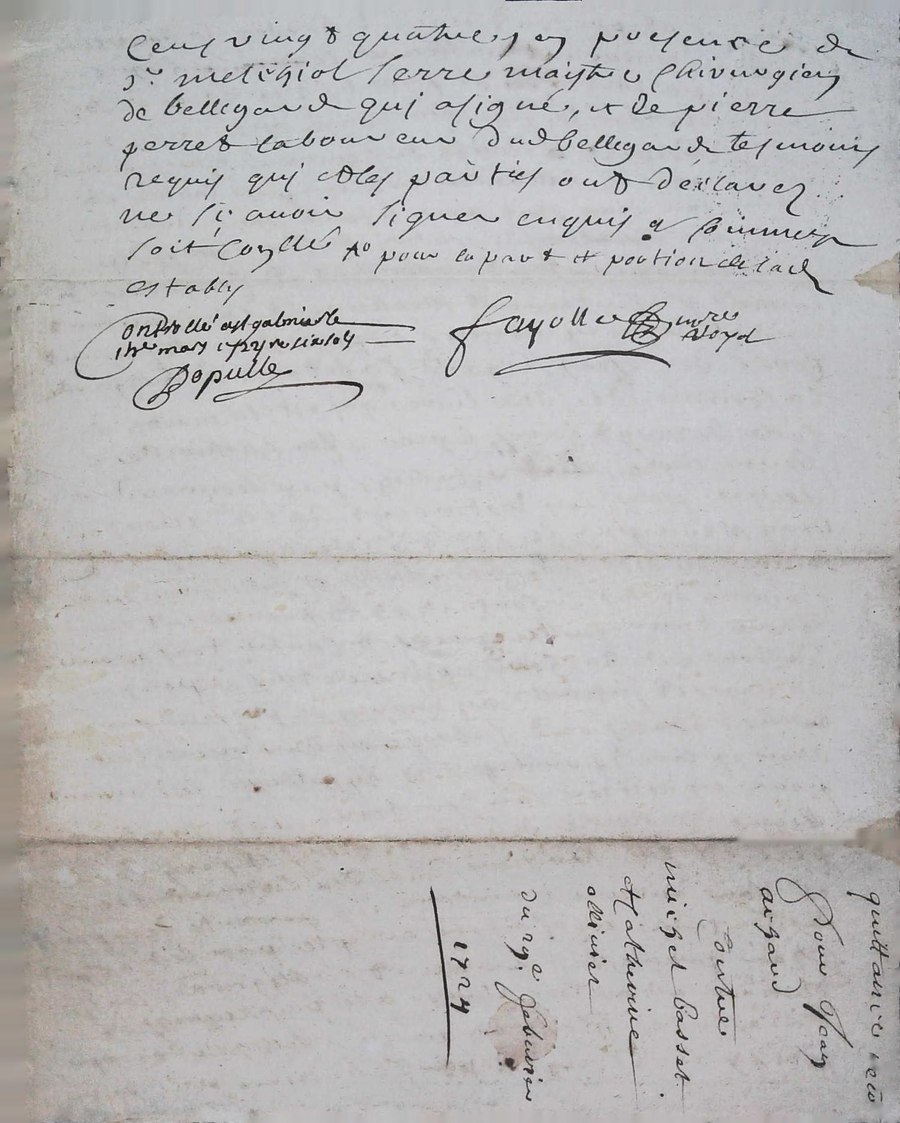 Cens vingt quatre, en presence de
Sr melchiol serre maistre Chirurgien
de bellegarde qui a signé, et de pierre
perret laboureur dud bellegarde tesmoins
requis qui et les parties ont déclarez
ne sçavoir signer enquis et sommez
soit Conllé po pour la part et portion de lad
establys
Controllé a st galmier le
mars 1724 re six sols
Populle
fayolle nore Royal
quittance
Pour Jean
arzaud
Contre
michel basset
et Catherine
ollivier
du 19e febvrier
1724